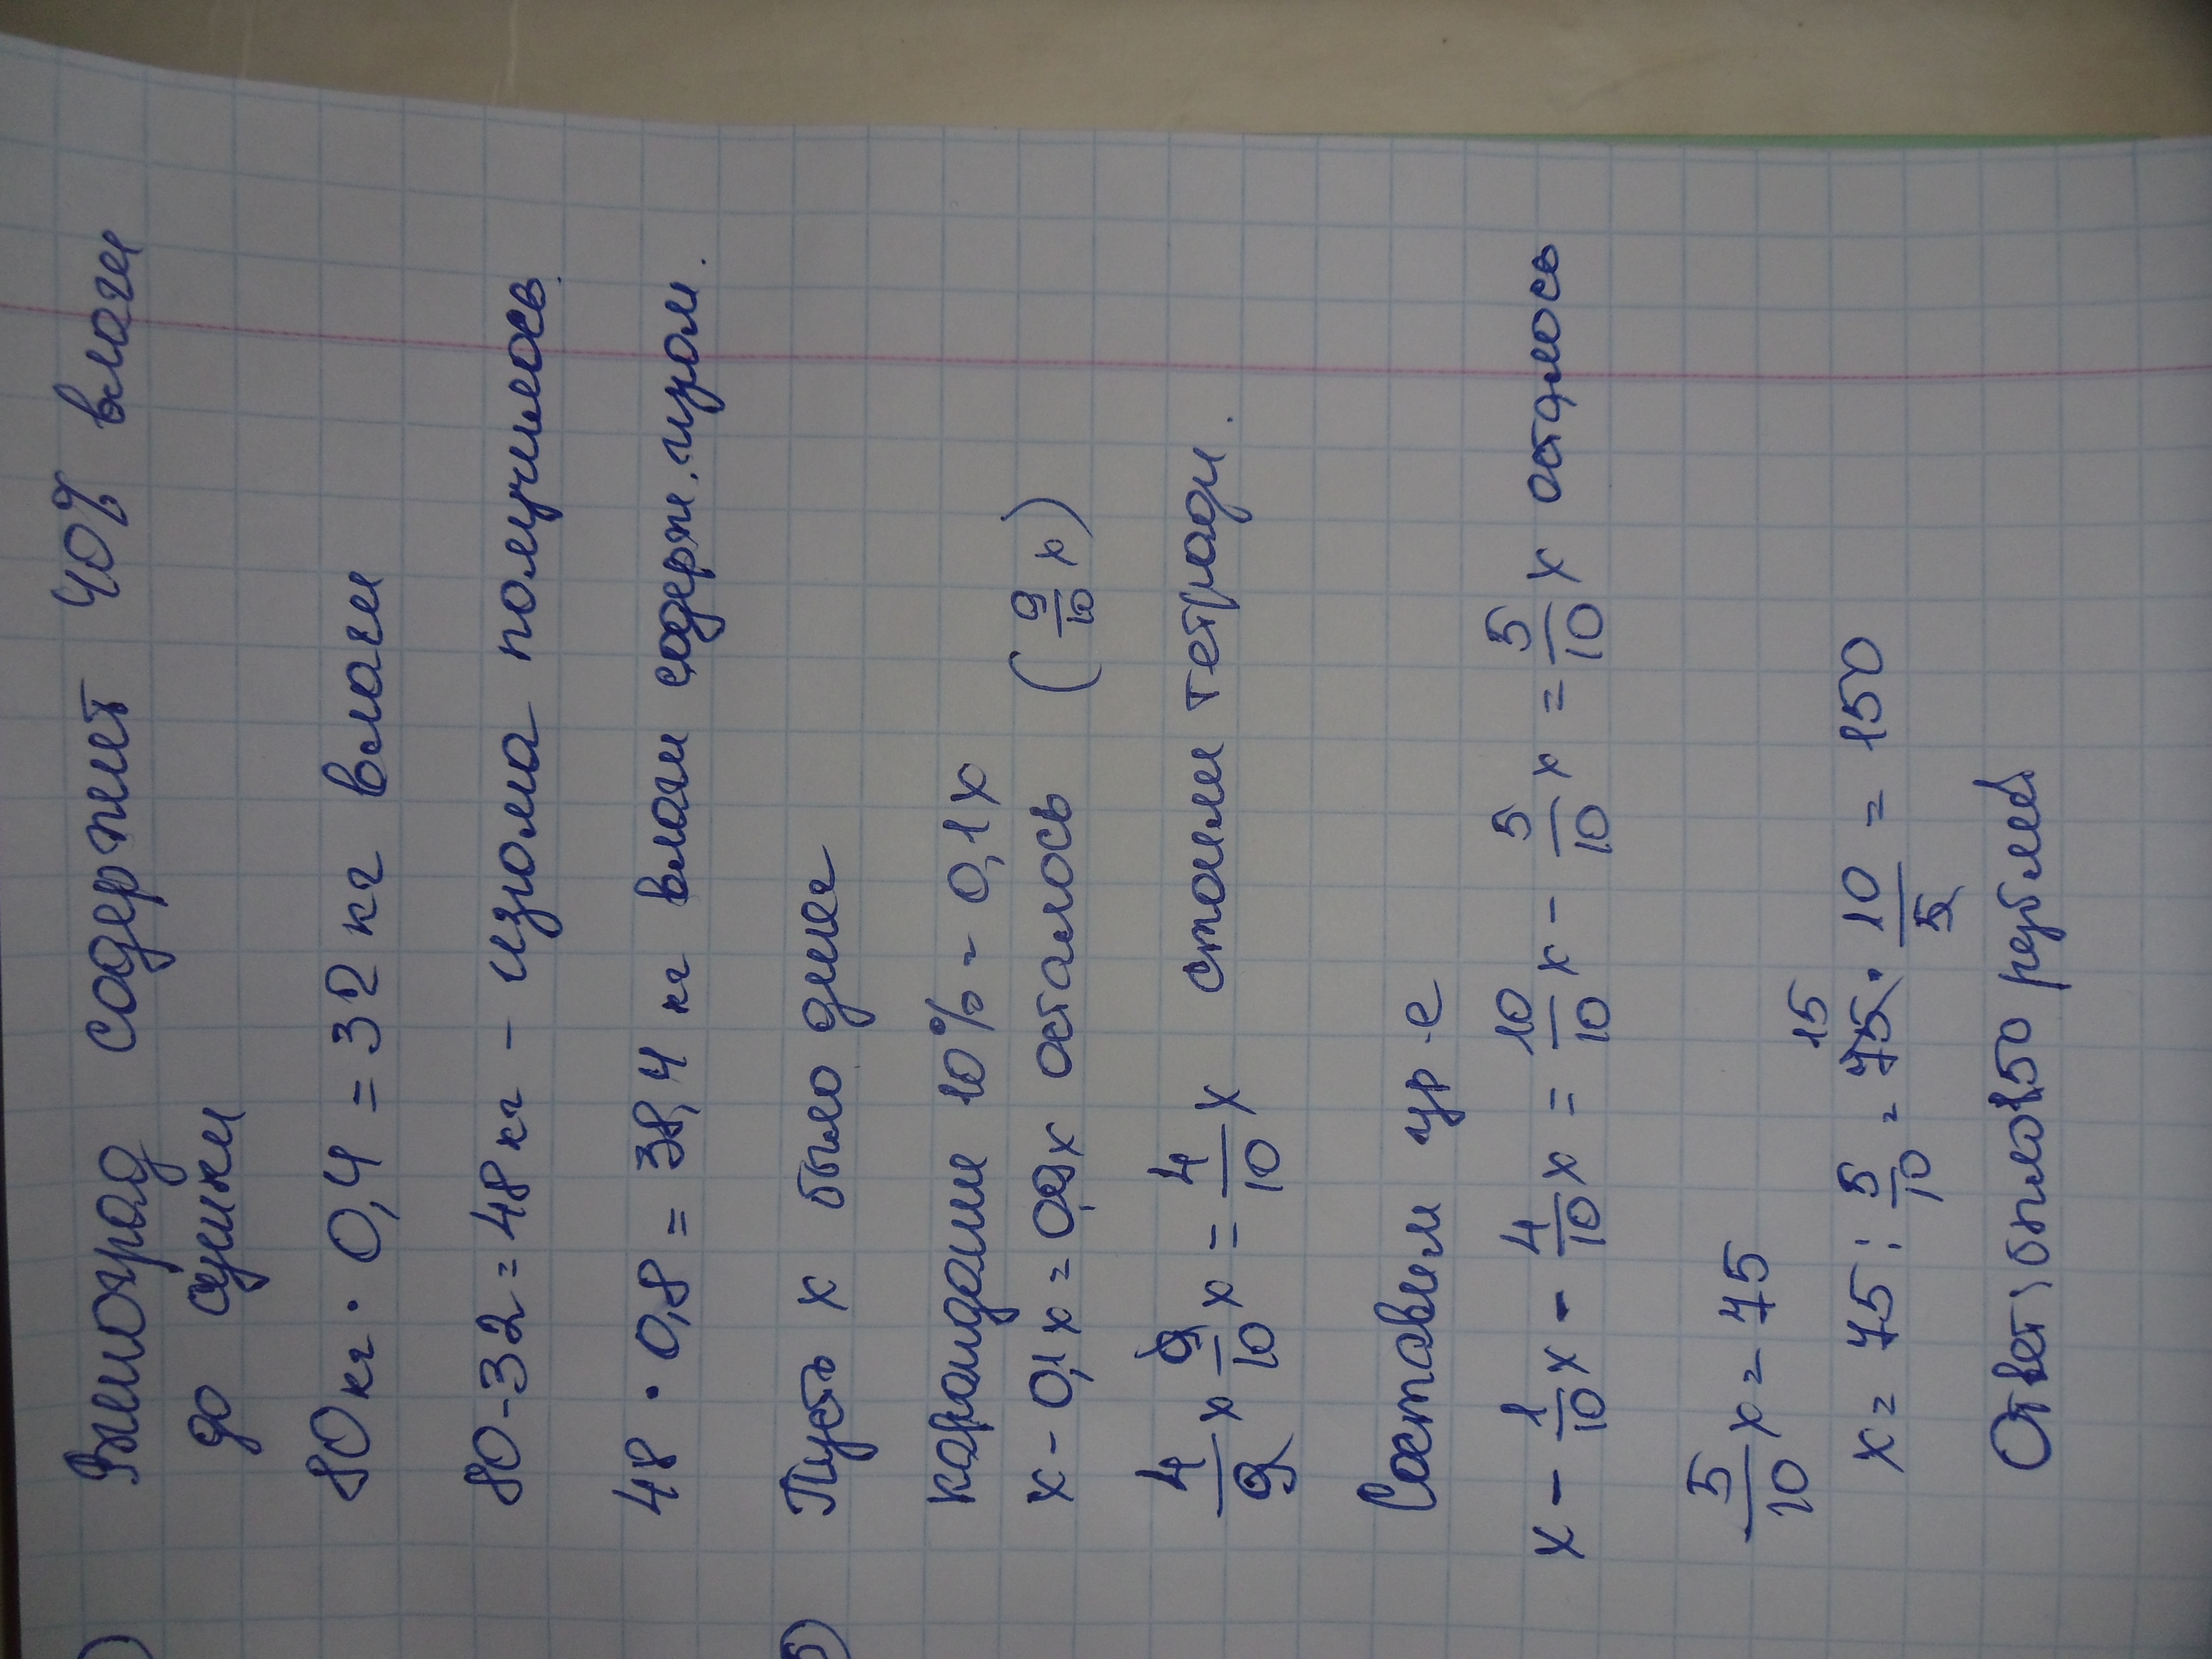 ) Виноград содержит 40% влаги
до сушки
80 кг · 0,4 = 32 кг влаги
80-32=48кг - изюма получилось.
48 · 0,8 = 38,4 кг влаги содерж. изюм.
5) Пусть х было денег
карандаши 10% - 0,1х
х - 0,1х = 0,9х осталось (9/10 х)
4/9 х 9/10 х = 4/10 х стоили тетради.
Составим ур-е
х - 1/10 х - 4/10 х = 10/10 х - 5/10 х = 5/10 х осталось
5/10 х = 75
х = 75 : 5/10 = 75 15 · 10/5 = 150
Ответ: было 150 рублей